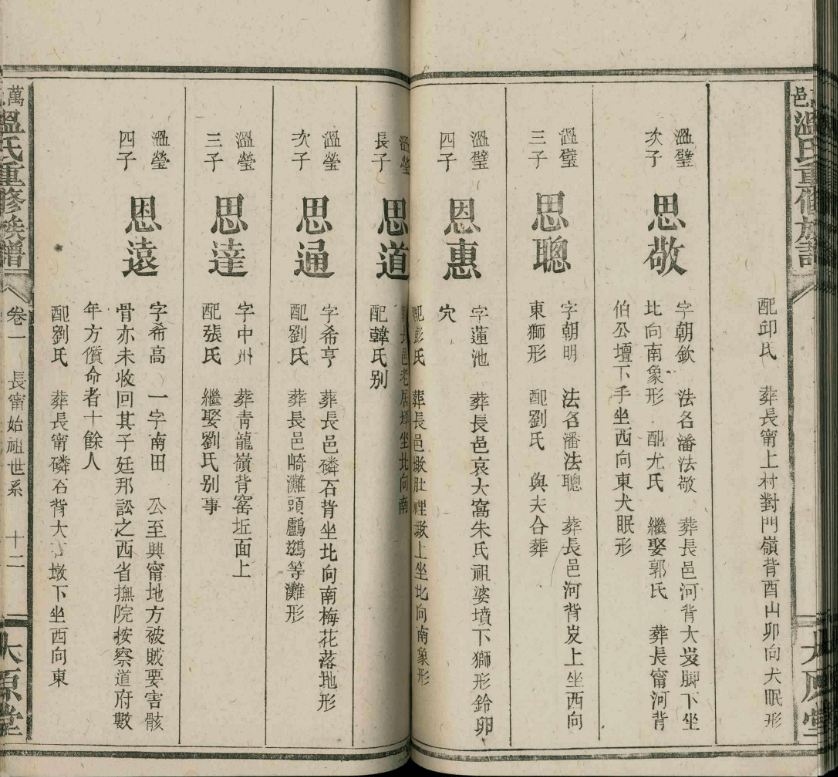 邑
溫氏重修族譜
太原堂
配邱氏 葬長甯上村對門嶺背酉山卯向犬眠形
溫璧
次子
思敬
字朝欽 法名潘法敬 葬長邑河背大岌脚下坐
北向南象形 配尤氏 繼娶郭氏 葬長甯河背
伯公壇下手坐西向東犬眠形
溫璧
三子
思聰
字朝明 法名潘法聰 葬長邑河背岌上坐西向
東獅形 配劉氏 與夫合葬
溫璧
四子
思惠
字蓮池 葬長邑哀大窩朱氏祖婆墳下獅形鈴卵
穴
配彭氏 葬長邑墩肚裡墩上坐北向南象形
溫瑩
長子
思道
葬長邑老屋坐北向南
配韓氏别
溫瑩
次子
思通
字希亨 葬長邑磷石背坐北向南梅花落地形
配劉氏 葬長邑崎灘頭鸕鷀等灘形
溫瑩
三子
思達
字中州 葬青龍嶺背窰坵面上
配張氏 繼娶劉氏别事
溫瑩
四子
思遠
字希高 一字南田 公至興甯地方破賊要害骸
骨亦未收回其子廷邦訟之西省撫院按察道府數
年方償命者十餘人
配劉氏 葬長甯磷石背大墩下坐西向東
萬
溫氏重修族譜
卷一 長甯始祖世系 十二
太原堂